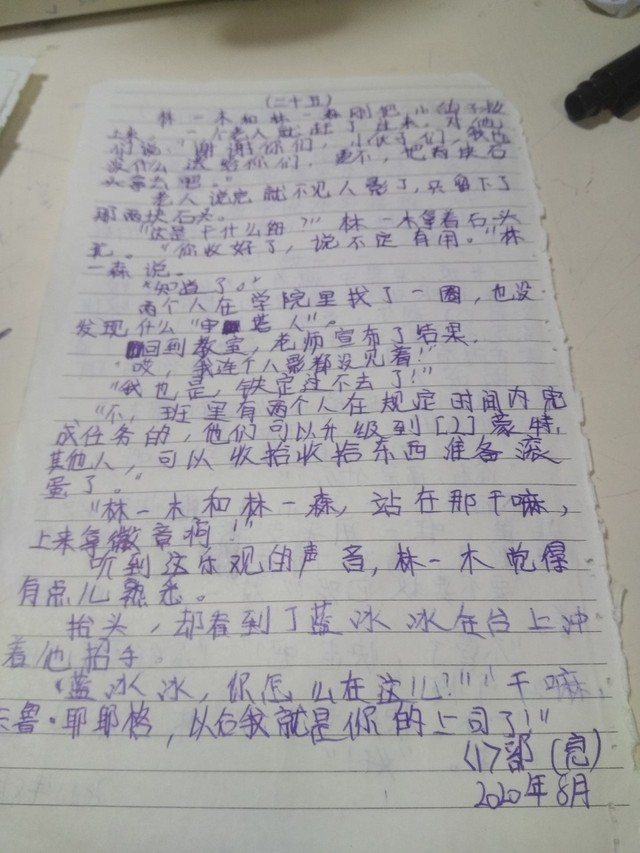 (二十五)
林一木和林一森刚把小仙子救
上来。一个老人就赶了过来，对他
们说："谢谢你们，小伙子们，我也
没什么送给你们，要不，把两块石
头拿去吧。"
老人说完就不见人影了，只留下了
那两块石头。
"这是干什么的？"林一木拿着石头
"你收好了，说不定有用。"林
一森说。
"知道了。"
两个人在学院里找了一圈，也没
发现什么"中 塔人"。
回到教室，老师宣布了结果。
"哎，我连个人影都没见着！"
"我也是，铁定过不去了！"
"不，班里有两个人在规定时间内完
成任务的，他们可以升级到[2]蒙特，
其他人，可以收拾收拾东西准备滚
蛋了。"
"林一木和林一森，站在那干嘛，
上来拿徽章啊！"
听到这乐观的声音，林一木觉得
有点儿熟悉。
抬头，却看到了蓝冰冰在台上冲
着他招手。
"蓝冰冰，你怎么在这儿？""干嘛，
鲁·耶耶格，以后我就是你的上司了！"
〈1〉部(完)
2020年8月